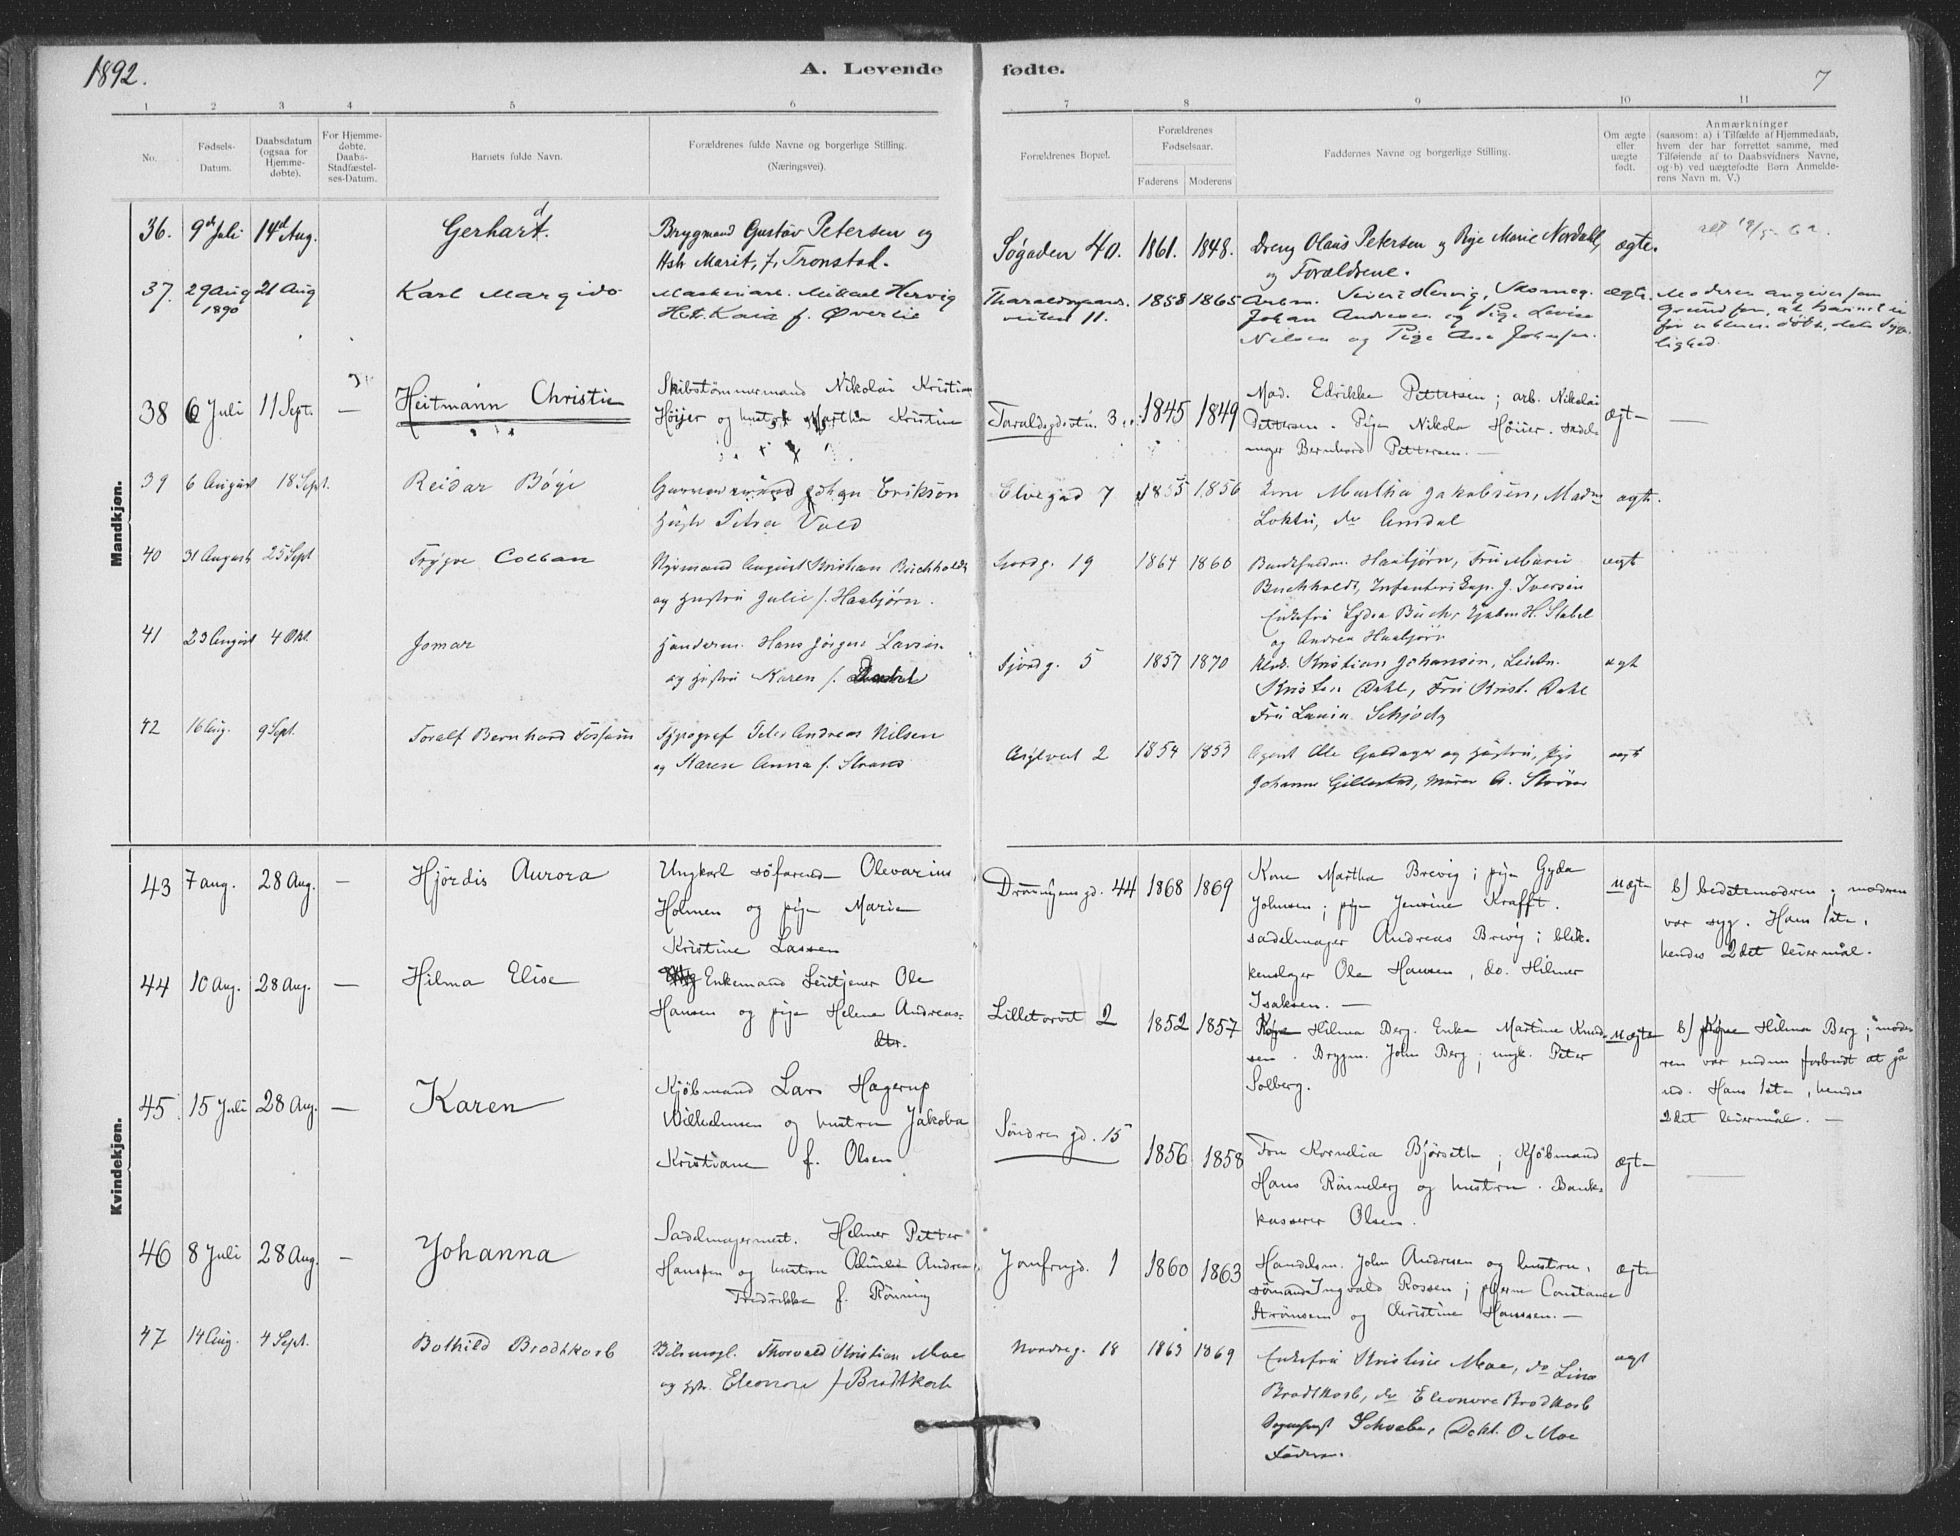 1892.
A. Levende fødte.
7
1 2 3 4 5 6 7 8 9 10 11
No.
Fødsels-
Datum.
Daabsdatum
(ogsaa for
Hjemme-
døbte).
For Hjemme-
døbte.
Daabs-
Stadfæstel-
ses-Datum.
Barnets fulde Navn.
Forældrenes fulde Navne og borgerlige Stilling.
(Næringsvei).
Forældrenes Bopæl.
Forældrenes
Fødselsaar.
Faderens
Moderens
Faddernes Navne og borgerlige Stilling.
Om ægte
eller
uægte
født.
Anmærkninger
(saasom: a) i Tilfælde af Hjemmedaab,
hvem der har forrettet samme, med
Tilføiende af to Daabsvidners Navne,
og b) ved uægtefødte Børn Anmelde-
rens Navn m. V.)
Mandkjøn.
36. 9de Juli 14de Aug. Gerhard.
Brygmand Gustav Petersen og
Hst. Marit, f. Tronstad.
Søgaden 40. 1861. 1848.
Dreng Olaus Petersen og Pige Marie Nordahl,
og Forældrene.
ægte.
37. 29 Aug 1890 21 Aug Karl Margido
Maskinarb. Mikael Hervig
Hst. Kaia f. Øverlie
Tharaldsgaards-
veiten 11. 1858 1865
Arbm. Sivert Hervig,
Johan Andresen og Pige Lovise
Nilsen og Pige Ane Johnsen.
ægte.
Moderen angiver som
Grund for, at Barnet ei
før er bleven døbt, dets Syge-
lighed.
38 6 Juli 11 Sept. — Heitmann Christie
Skibstømmermand Nikolai Kristian
Høyer og hustru Martha Kristine
Taraldsgdsvtn. 3 1845 1849
Mad. Edrikke Pettersen; arb. Nikolai
Pettersen. Pigen Nikola Høiier. sadel-
mager Bernhard Pettersen. —
ægte —
39 6 August 18 Sept. Reidar Bøge
Johan Erikson
Hustr. Petra Vold
Elvegad 7 1855 1856
Martha Jakobsen, Madm
Loktu, do Amdal
ægte.
40 31 August 25 Sept Trygve Colban
August Kristian Buchholdt
og Hustru Julie f. Haabjørn.
Fjordg. 19 1864 1860
Haabjørn, Fru Marie
Buchholdt, Infanterikap. J. Iversen
Enkefru Lydia Buch, H. Stabel
og Andrea Haabjørn
ægt
41 23 August 4 Okt. Jomar
Handelsm. Hans Jørgen Lavin
og Hustru Karen f.
Fjordg. 5 1857 1870
Kristian Johansen, Leutn.
Kristen Dahl, Fru Krist. Dahl
Fru Lavin Schjødy
ægt
42 16 Aug. 9 Sept. Toralf Bernhard Fossum
Typograf Peter Andreas Nilsen
og Maren Anna f. Strand
Asylveit 2 1854 1853
Agent Ole Galdager og Hustru, Pige
Johanne Gillestad, Murer A. Størner
ægt
Kvindekjøn.
43 7 aug. 28 Aug. — Hjørdis Aurora
Ungkarl søfarende Olevarius
Holmen og pige Marie
Kristine Lassen
Dronningens gd. 44 1868 1869
Kone Martha Brevig; pige Gyda
Johnsen; pige Jensine Krafft.
sadelmager Andreas Brevig; blik-
kenslager Ole Hansen, do. Hilmer
Isaksen. —
uægte
b) bedstemodren; modren
var syg. Hans 1ste,
hendes 2det leiermål.
44 10 Aug. 28 Aug. — Hilma Elise
Enkemand Ole
Hansen og pige Helena Andreas-
dtr.
Lilletorvet 2 1852 1857
Hilma Berg. Enke Martine Knud-
sen. Brygm. John Berg; ungk. Peter
Solberg.
uægte
b) pigen Hilma Berg; mode-
ren var endnu forbudt at gå
ud. Hans 1ste, hendes
2det leiermål. —
45 15 Juli 28 Aug. — Karen
Kjøbmand Lars Hagerup
Wilhelmsen og hustru Jakoba
Kristiane f. Olsen
Søndre gd. 15 1856 1858
Frøken Kornelia Bjørseth; Kjøbmand
Hans Rønneberg og hustru. Bank-
kasserer Olsen.
ægte
46 8 Juli 28 Aug. — Johanna
Sadelmagermest. Helmer Petter
Hanssen og hustru Andrea
Fredrikke f. Rønning
Jomfrugd. 1 1860 1863
Handelsm. John Andresen og hustru,
sømand Ingvald Rossen; pigerne Constance
Strømsem og Christine Hanssen. —
ægte
47 14 Aug. 4 Sept. Bothild Brodtkorb
Thorvald Kristian Moe
og Hst. Eleonore f Brodtkorb
Nordreg. 18 1863 1869
Enkefru Kristine Moe, do Lina
Brodtkorb, do Eleonore Brodtkorb
Schvabe, Dokt. O. Moe
Faderen.
ægt